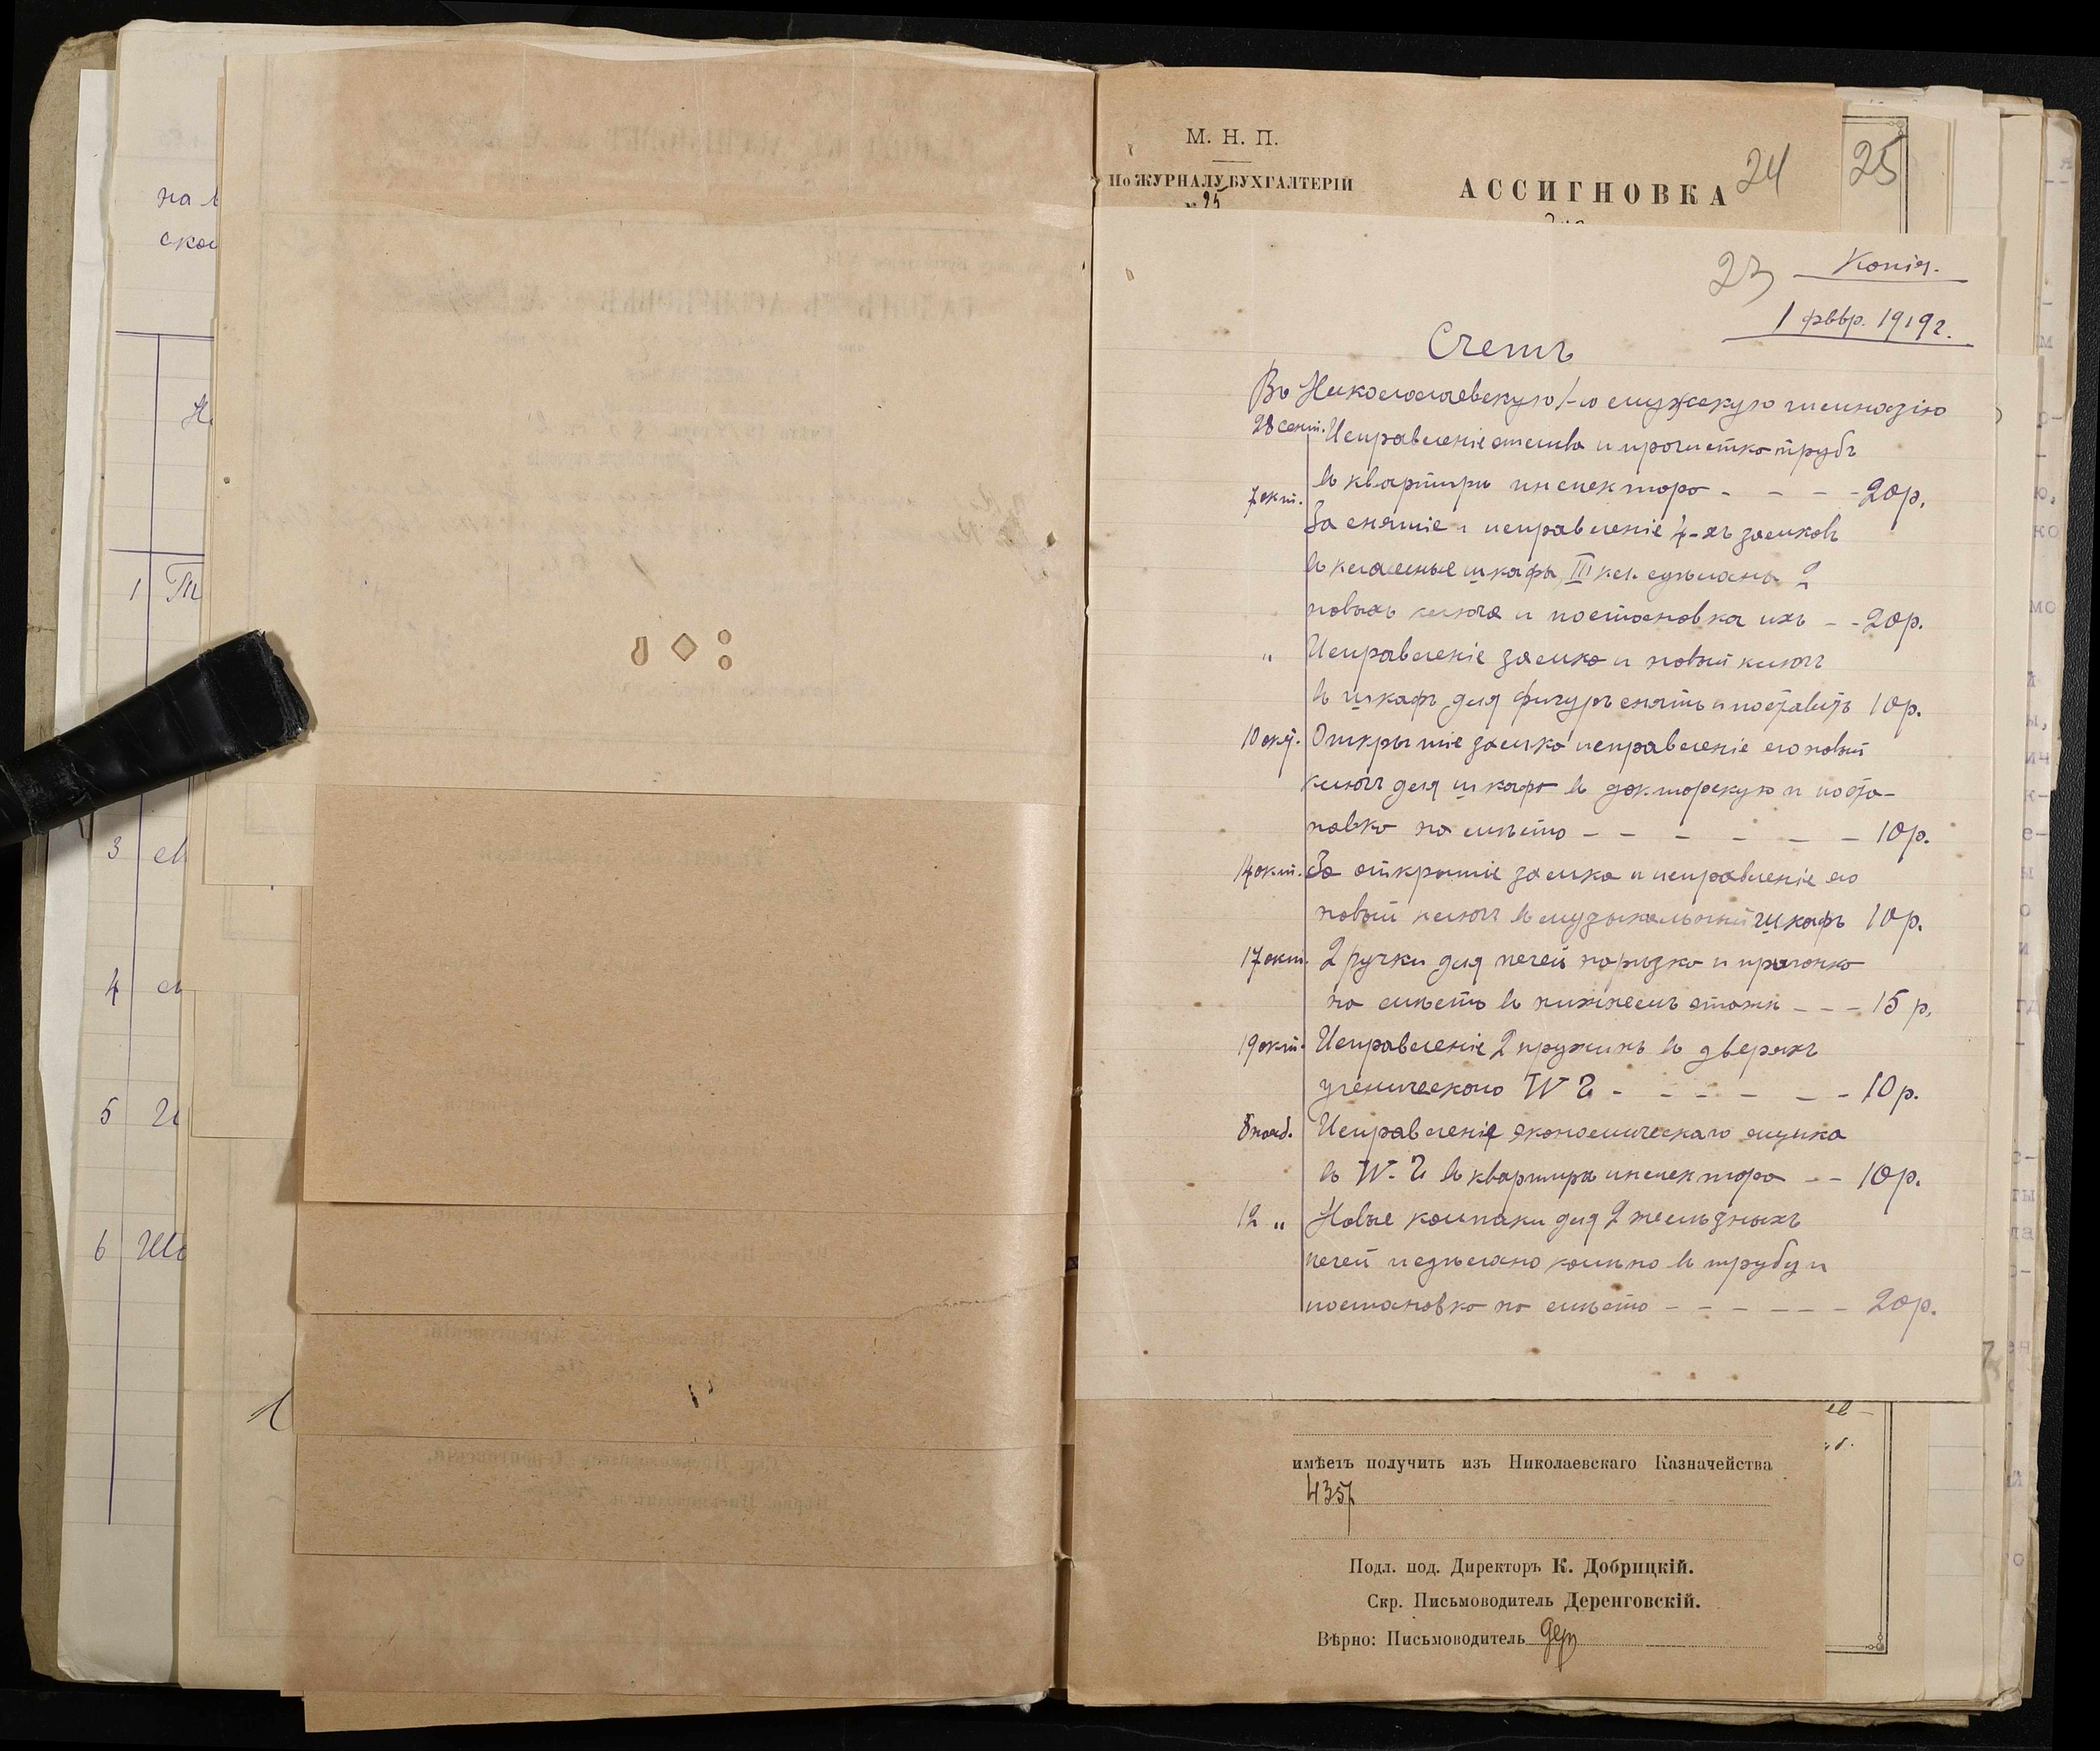 на
ско
1
3
4
5
6
М. Н. П.
По ЖУРНАЛУ БУХГАЛТЕРІИ
25
АССИГНОВКА
24
25
23
Копія.
1 февр. 1919 г.
Счетъ
Въ Николаевскую 1-ю мужскую гимназію
28 сент. Исправленіе и прочистка трубъ
въ квартирѣ инспектора - - - - 20 р.
7 окт.
За снятіе и исправленіе 4-хъ замковъ
въ классные шкафы III кл. сдѣлано 2
новыхъ ключа и постановка ихъ - - 20 р.
" Исправленіе замка и новый ключъ
въ шкафъ для фигуръ снять и поставить 10 р.
10 окт. Открытіе замка исправленіе его новый
ключъ для шкафа въ докторскую и поста-
новка на мѣсто - - - - - - 10 р.
14 окт. За открытіе замка и исправленіе его
новый ключъ въ музыкальный шкафъ 10 р.
17 окт. 2 ручки для печей нарѣзка и пригонка
на мѣсто въ нижнемъ этажѣ - - - 15 р.
19 окт. Исправленіе 2 пружинъ въ дверяхъ
ученического W - - - - - - 10 р.
8 нояб. Исправленіе экономическаго
въ W. въ квартирѣ инспектора - - 10 р.
12 " Новые колпаки для 2 желѣзныхъ
печей и сдѣлано колѣно въ трубу и
постановка на мѣсто - - - - - - 20 р.
имѣетъ получить изъ Николаевскаго Казначейства
4357
Подл. под. Директоръ К. Добрицкій.
Скр. Письмоводитель Деренговскій.
Вѣрно: Письмоводитель Дер